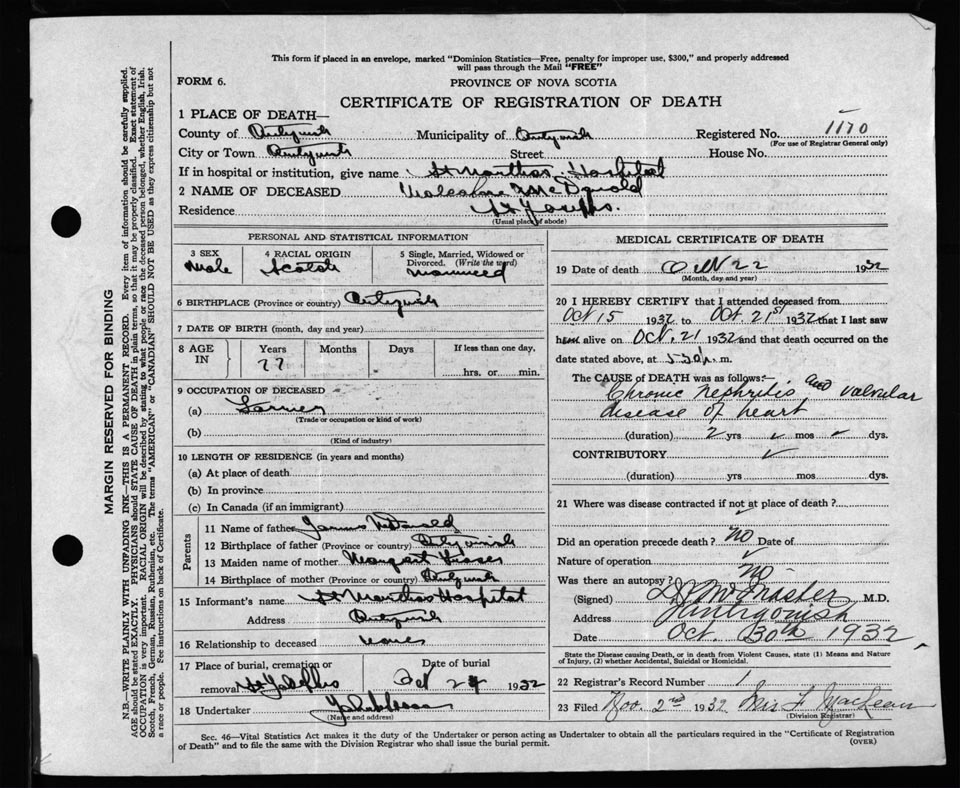 This form if placed in an envelope, marked "Dominion Statistics—Free, penalty for improper use, $300," and properly addressed
will pass through the Mail "FREE"
FORM 6.
PROVINCE OF NOVA SCOTIA
CERTIFICATE OF REGISTRATION OF DEATH
1 PLACE OF DEATH—
County of Antigonish Municipality of Antigonish Registered No. 1170
(For use of Registrar General only)
City or Town Antigonish Street House No.
If in hospital or institution, give name St Marthas Hospital
2 NAME OF DECEASED Malcolm McDonald
Residence St Josephs.
(Usual place of abode)
PERSONAL AND STATISTICAL INFORMATION
3 SEX 4 RACIAL ORIGIN 5 Single, Married, Widowed or
Divorced. (Write the word)
Male Scotch Married
6 BIRTHPLACE (Province or country) Antigonish
7 DATE OF BIRTH (month, day and year)
8 AGE IN Years Months Days If less than one day,
77 hrs. or min.
9 OCCUPATION OF DECEASED
(a) Farmer
(Trade or occupation or kind of work)
(b)
(Kind of industry)
10 LENGTH OF RESIDENCE (in years and months)
(a) At place of death
(b) In province
(c) In Canada (if an immigrant)
Parents
11 Name of father James McDonald
12 Birthplace of father (Province or country) Antigonish
13 Maiden name of mother Margaret
14 Birthplace of mother (Province or country) Antigonish
15 Informant's name St Marthas Hospital
Address Antigonish
16 Relationship to deceased none
17 Place of burial, cremation or Date of burial
removal St Josephs Oct 24 1932
18 Undertaker
(Name and address)
MEDICAL CERTIFICATE OF DEATH
19 Date of death Oct 22 1932
(Month, day and year)
20 I HEREBY CERTIFY that I attended deceased from
Oct 15 1932 to Oct. 21st 1932 that I last saw
him alive on Oct. 21 1932 and that death occurred on the
date stated above, at m.
The CAUSE OF DEATH was as follows:—
Chronic nephritis and valvular
disease of heart
(duration) 2 yrs mos dys.
CONTRIBUTORY
(duration) yrs mos dys.
21 Where was disease contracted if not at place of death?
Did an operation precede death? No Date of
Nature of operation
Was there an autopsy? No
(Signed) M.D.
Address Antigonish
Date Oct. 30th 1932
State the Disease causing Death, or in death from Violent Causes, state (1) Means and Nature
of Injury, (2) whether Accidental, Suicidal or Homicidal.
22 Registrar's Record Number 1
23 Filed Nov. 2nd 1932 MacLean
(Division Registrar)
Sec. 46—Vital Statistics Act makes it the duty of the Undertaker or person acting as Undertaker to obtain all the particulars required in the "Certificate of Registration
of Death" and to file the same with the Division Registrar who shall issue the burial permit.
(OVER)
MARGIN RESERVED FOR BINDING
N.B.—WRITE PLAINLY WITH UNFADING INK—THIS IS A PERMANENT RECORD. Every item of information should be carefully supplied.
AGE should be stated EXACTLY. PHYSICIANS should STATE CAUSE OF DEATH in plain terms, so that it may be properly classified. Exact statement of
OCCUPATION is very important. RACIAL ORIGIN will be described by stating to what people or race the deceased person belonged, whether English, Irish,
Scotch, French, German, Russian, Ruthenian, etc. The terms "AMERICAN" or "CANADIAN" SHOULD NOT BE USED as they express citizenship but not
a race or people. See instructions on back of Certificate.